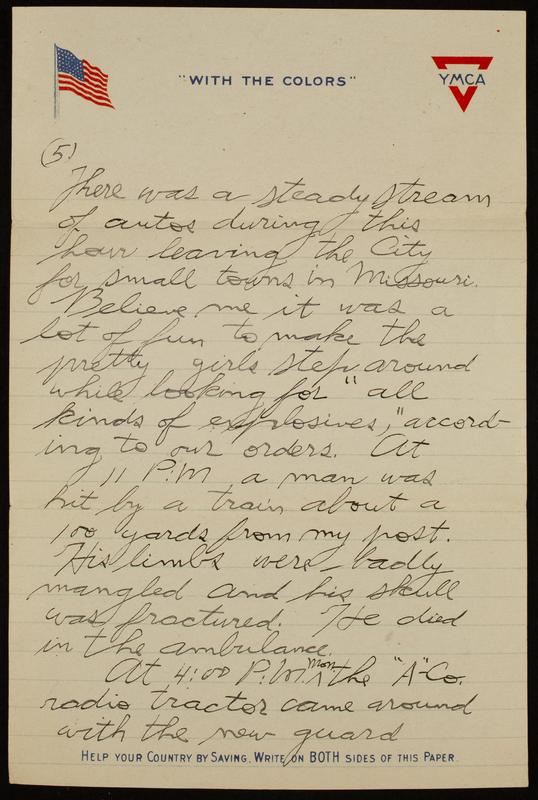 "WITH THE COLORS"
YMCA
(5)
There was a steady stream
of autos during this
hour leaving the City
for small towns in Missouri.
Believe me it was a
lot of fun to make the
pretty girls step around
while looking for "all
kinds of explosives," accord-
ing to our orders. At
11 P.M. a man was
hit by a train about a
100 yards from my post.
His limbs were badly
mangled and his skull
was fractured. He died
in the ambulance.
At 4:00 P.M. Mon. the "A" Co.
radio tractor came around
with the new guard
HELP YOUR COUNTRY BY SAVING. WRITE ON BOTH SIDES OF THIS PAPER.